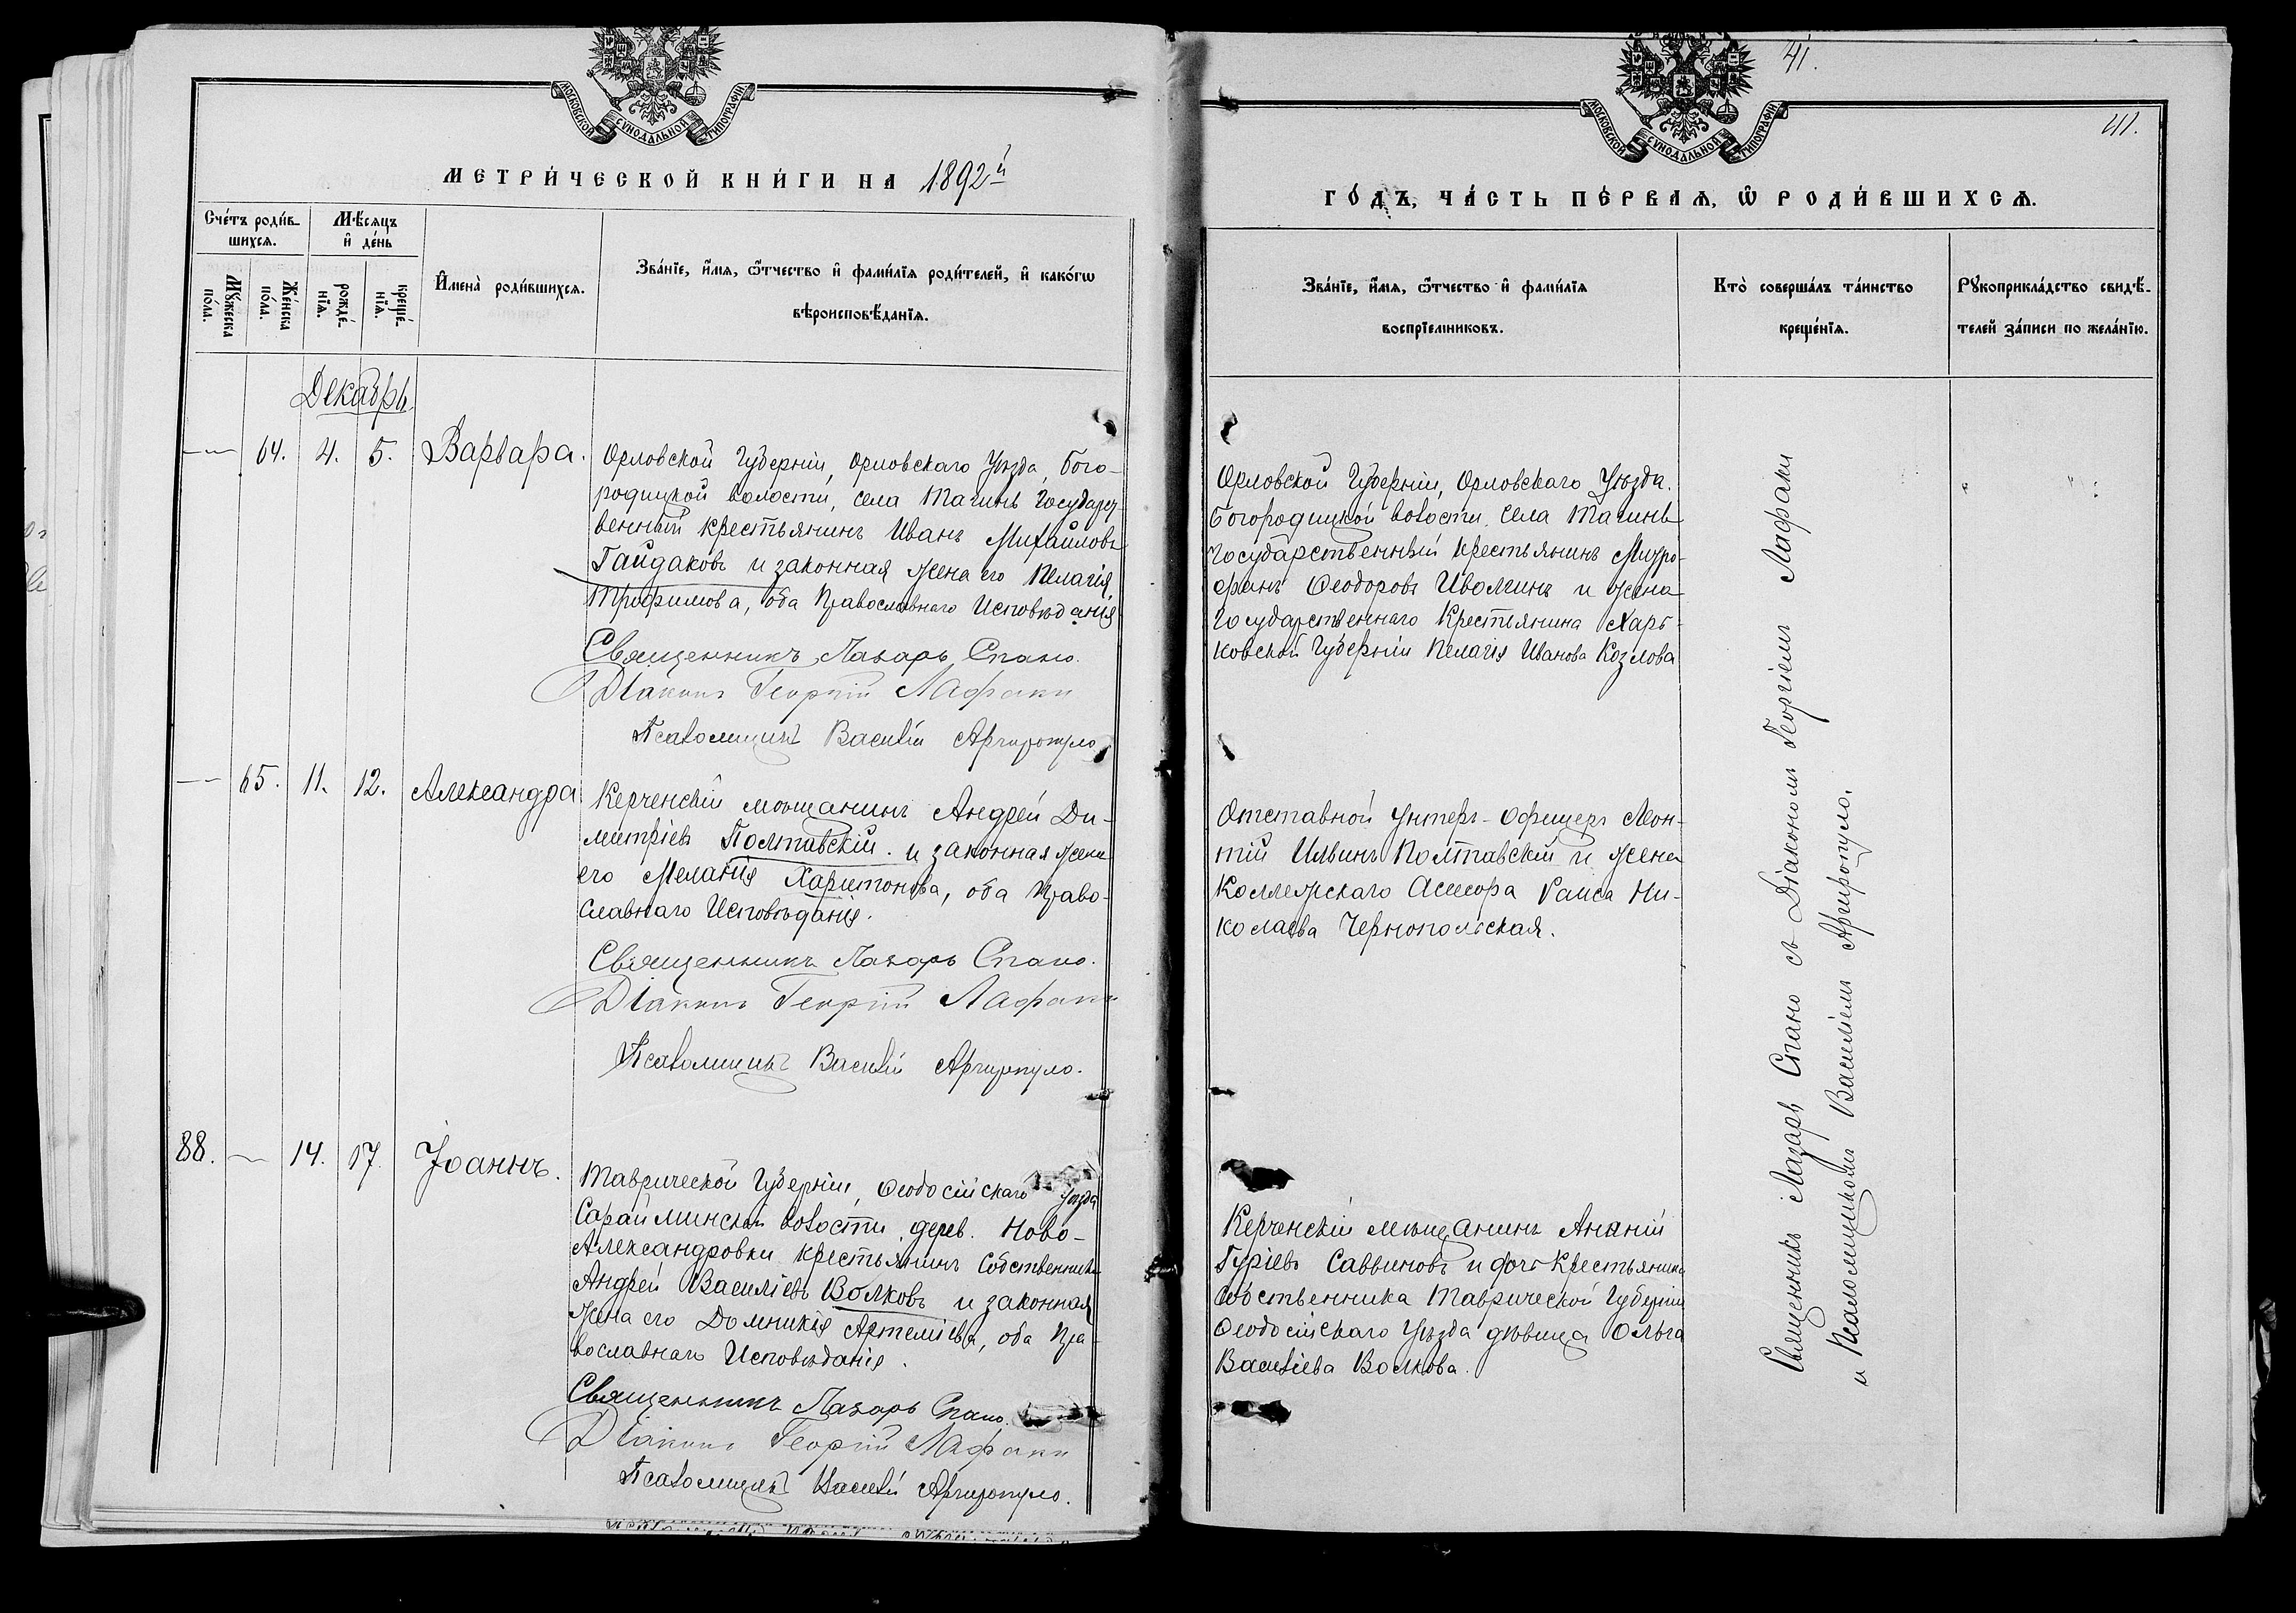 МОСКОВСКОЙ СѴНОДАЛЬНОЙ ТИПОГРАФІИ
МЕТРИ́ЧЕСКОЙ КНИ́ГИ НА 1892й
Сче́тъ роди́в-
шихсѧ.
Мѣ́сяцъ
и҆ де́нь
Мꙋ́жеска
по́ла.
Же́нска
по́ла.
рожде́-
нїѧ.
креще́-
нїѧ.
И҆мена̀ роди́вшихсѧ.
Зва́нїе, и҆́мѧ, ѻ҆́тчество и҆ фами́лїѧ роди́телей, и҆ како́гѡ
вѣроисповѣ́данїѧ.
Декабрь.
— 64. 4. 5. Варвара.
Орловской Губерніи, Орловскаго Уѣзда, Бого-
родицкой волости, села Тагинъ Государст-
венный крестьянинъ Иванъ Михайловъ
Гайдаковъ и законная жена его Пелагія
Трофимова, оба Православнаго Исповѣданія
Священникъ Лазарь Спано.
Діаконъ Георгій Лафаки
Псаломщикъ Василій Аргиропуло
— 65. 11. 12. Александра
Керченскій мѣщанинъ Андрей Ди-
митріевъ Полтавскій и законная жена
его Меланія Харитонова, оба Право-
славнаго Исповѣданія.
Священникъ Лазарь Спано.
Діаконъ Георгій Лафаки
Псаломщикъ Василій Аргиропуло.
88. — 14. 17. Іоаннъ.
Таврической Губерніи, Ѳеодосійскаго Уѣзда
Сарайминской волости, дерев. Ново-
Александровки крестьянинъ Собственникъ
Андрей Василіевъ Волковъ и законная
жена его Домникія Артеміева, оба Пра-
вославнаго Исповѣданія.
Священникъ Лазарь Спано.
Діаконъ Георгій Лафаки
Псаломщикъ Василій Аргиропуло.
41.
МОСКОВСКОЙ СѴНОДАЛЬНОЙ ТИПОГРАФІИ
41.
ГО́ДЪ, ЧА́СТЬ ПЕ́РВАѦ, Ѡ҆ РОДИ́ВШИХСѦ.
Зва́нїе, и҆́мѧ, ѻ҆́тчество и҆ фами́лїѧ
воспрїе́мниковъ.
Кто̀ соверша́лъ та́инство
креще́нїѧ.
Рꙋкоприкла́дство свидѣ́-
телей за́писи по жела́нїю.
Орловской Губерніи, Орловскаго Уѣзда.
Богородицкой волости, села Тагинъ
Государственный крестьянинъ Митро-
фанъ Ѳеодоровъ Иволгинъ и жена
Государственнаго Крестьянина Харь-
ковской Губерніи Пелагія Иванова Козлова
Отставной Унтеръ-Офицеръ Леон-
тій Ильинъ Полтавскій и жена
Коллежскаго Асесора Раиса Ни-
колаева Чернопольская.
Керченскій мѣщанинъ Ананій
Гуріевъ Саввиновъ и дочь Крестьянина
Собственника Таврической Губерніи
Ѳеодосійскаго Уѣзда дѣвица Ольга
Василіева Волкова.
Священникъ Лазарь Спано съ Діакономъ Георгіемъ Лафаки
и Псаломщикомъ Василіемъ Аргиропуло.